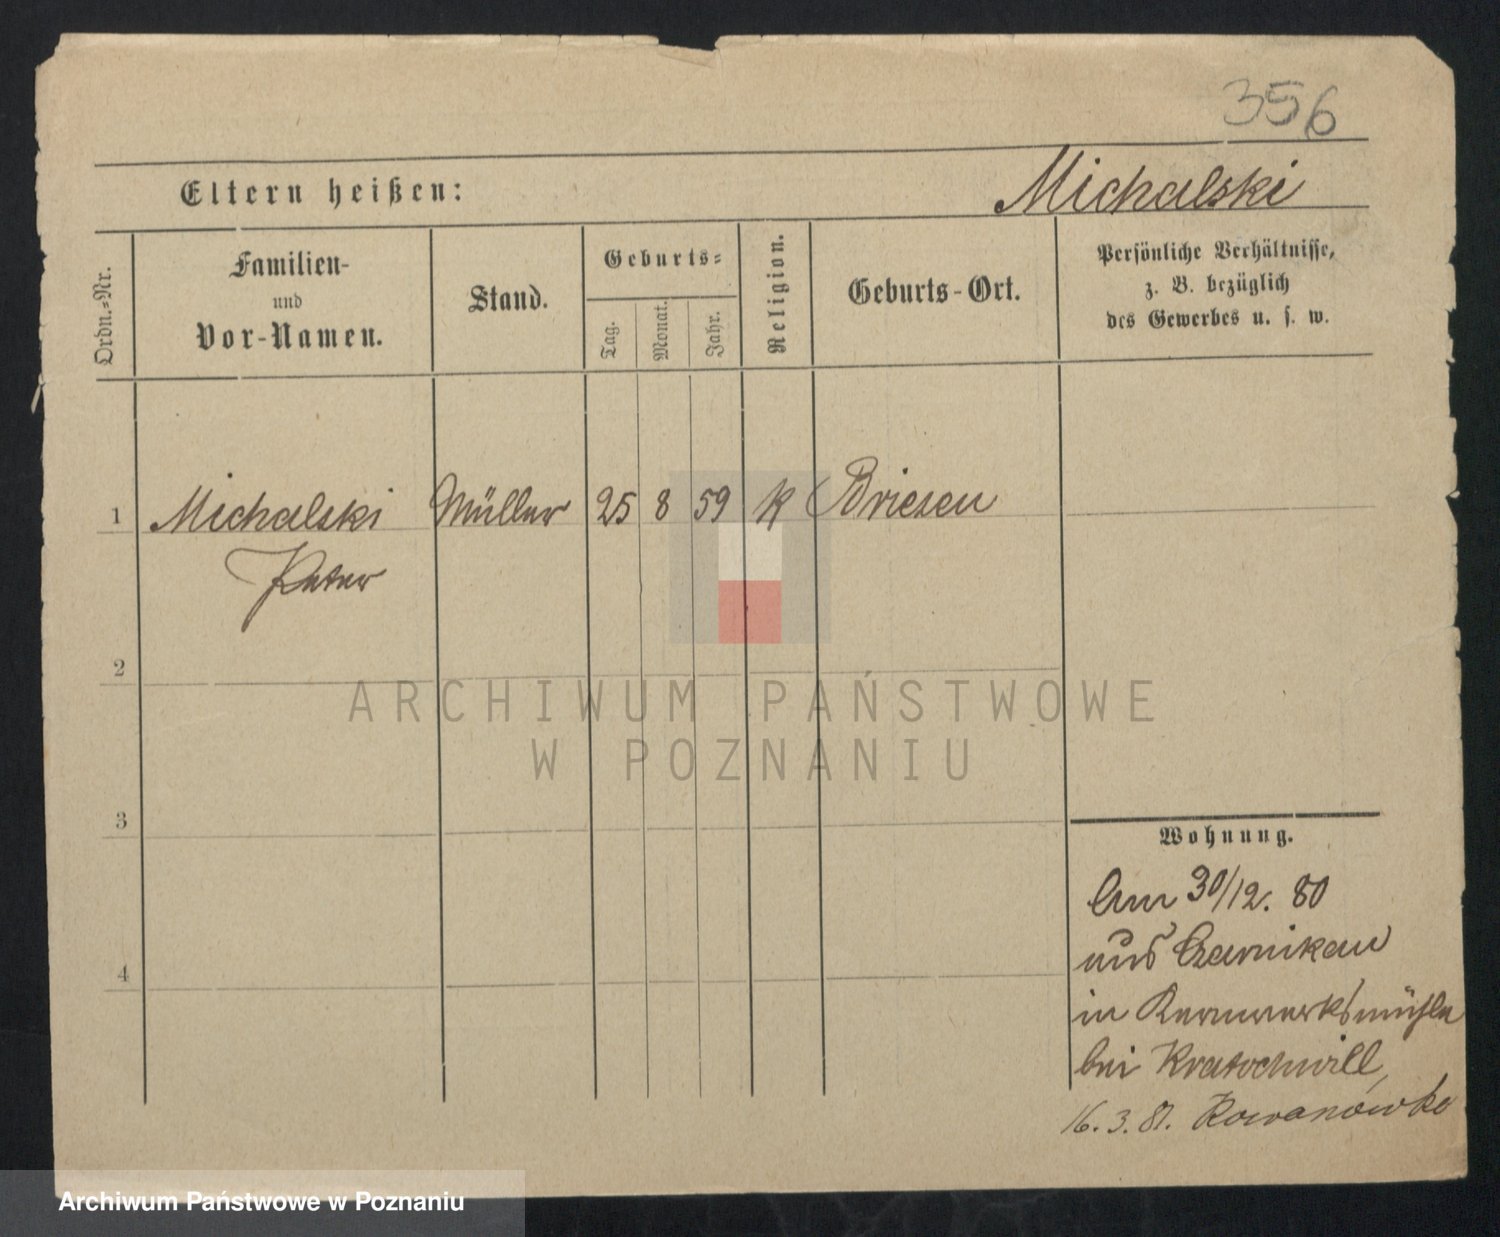 356
Eltern heißen:
Michalski
Ordn.-Nr.
Familien-
und
Vor-Namen.
Stand.
Geburts-
Tag.
Monat.
Jahr.
Religion.
Geburts-Ort.
Persönliche Verhältnisse,
z. B. bezüglich
des Gewerbes u. s. w.
1 Michalski Müller 25 8 59 K Briesen
Peter
2
ARCHIWUM PAŃSTWOWE
W POZNANIU
3
Wohnung.
Am 30/12. 80
aus Czarnikau
in
4
bei Kratochwill,
16. 3. 81. Kowanówko
Archiwum Państwowe w Poznaniu